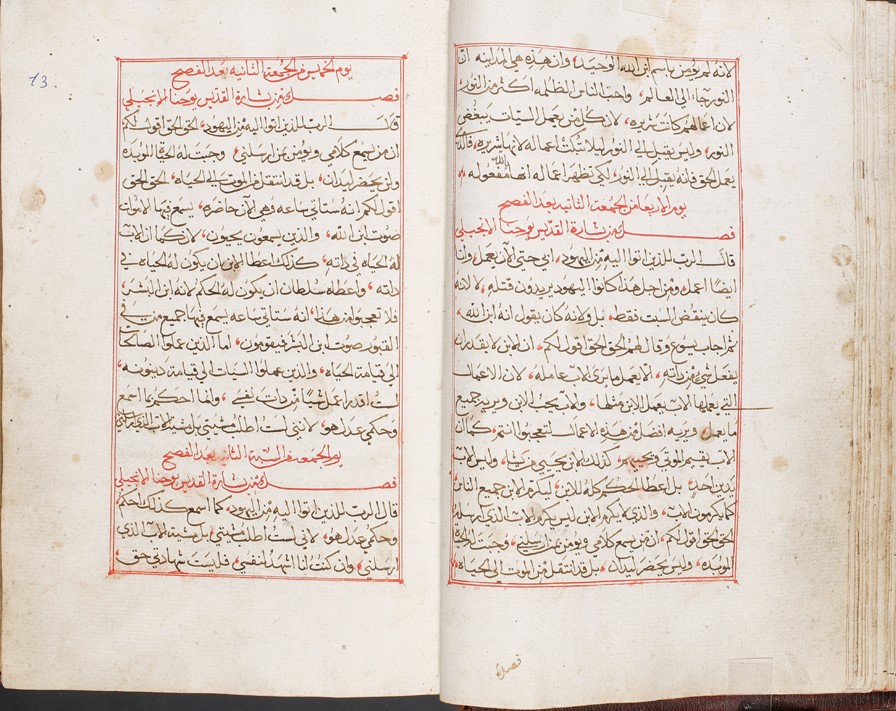 لانه لم يومن باسم ابن الله الوحيد، وان هذه هي المداينه ان
النور جا الى العالم، واحب الناس الظلمه اكثر من النور،
لان اعمالهم كانت شريره، لان كل من يعمل السيات يبغض
النور، وليس يقبل الى النور ليلا تبكت اعماله لانها شريره، فاما الذي
يعمل الحق فانه يقبل الى النور، لكي تظهر اعماله انها بالله مفعوله
يوم الاربعا من الجمعة الثانيه بعد الفصح
فصل من بشارة القديس يوحنا الانجيلي
قال الرب للذين اتوا اليه من اليهود، ابي حتى الآن يعمل، وانا
ايضا اعمل، ومن اجل هذا كانوا اليهود يريدون قتله، لا لانه
كان ينقض السبت فقط، بل ولانه كان يقول انه ابن الله،
ثم اجاب يسوع وقال لهم الحق الحق اقول لكم، ان الابن لا يقدر ان
يفعل شي من ذاته، الا يعمل ما يرى الاب عامله، لان الاعمال
التي يعملها الاب يعمل الابن مثلها، والاب يحب الابن ويريه جميع
ما يعمل، ويريه افضل من هذه الاعمال لتعجبوا انتم، كما ان
الاب يقيم الموتى ويحييهم، كذلك الابن يحيي من يشا، وليس الاب
يدين احد، بل اعطا الحكم كله للابن، ليكرم الابن جميع الناس
كما يكرمون الاب، والذي لا يكرم الابن ليس يكرم الاب الذي ارسله
الحق الحق اقول لكم، ان من يسمع كلامي ويومن بمن ارسلني، وجبت له الحياة
الموبده، وليس يحضر ليدان، بل قد انتقل من الموت الى الحياه
فصل
13
يوم الخميس من الجمعة الثانيه بعد الفصح
فصل من بشارة القديس يوحنا الانجيلي
قال الرب للذين اتوا اليه من اليهود، الحق الحق اقول لكم
ان من يسمع كلامي ويومن بمن ارسلني، وجبت له الحياة الموبده
ولن يحضر ليدان، بل قد انتقل من الموت الى الحياه، الحق الحق
اقول لكم انه ستاتي ساعه وهي الآن حاضره، يسمع فيها الاموات
صوت ابن الله، والذين يسمعون يحيون، لان كما ان الاب
له الحياه في ذاته، كذلك اعطا الابن ان يكون له الحياه في
ذاته، واعطاه سلطان ان يكون له الحكم لانه ابن البشر،
فلا تعجبوا من هذا، انه ستاتي ساعه يسمع فيها جميع من في
القبور صوت ابن البشر فيقومون، اما الذين عملوا الصالحات
الى قيامة الحياه، والذين عملوا السيات الى قيامة دينونه،
لست اقدر اعمل شيا من ذات نفسي، وانما احكم بما اسمع
وحكمي عدل هو، لانني لست اطلب مشيتي بل مشية الاب الذي ارسلني
يوم الجمعه من الجمعة الثانيه بعد الفصح
فصل من بشارة القديس يوحنا الانجيلي
قال الرب للذين اتوا اليه من اليهود، كما اسمع كذلك احكم
وحكمي عدل هو، لانني لست اطلب مشيتي، بل مشية الاب الذي
ارسلني، وان كنت انا اشهد لنفسي، فليست شهادتي حق